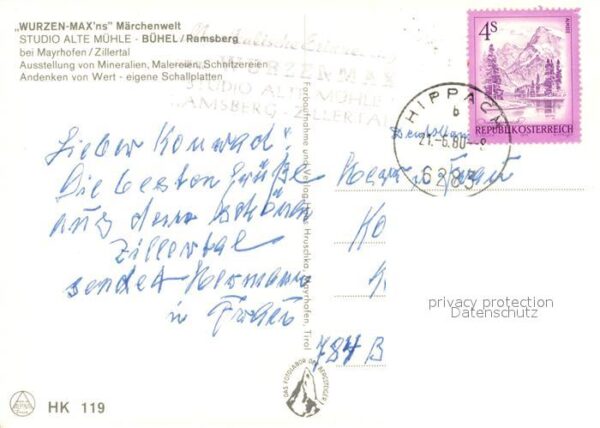 „WURZEN-MAX'ns" Märchenwelt
STUDIO ALTE MÜHLE - BÜHEL/Ramsberg
bei Mayrhofen / Zillertal
Ausstellung von Mineralien, Malereien, Schnitzereien
Andenken von Wert - eigene Schallplatten
Musikalische Erinnerung
WURZENMAX
STUDIO ALTE MÜHLE
RAMSBERG - ZILLERTAL
4S
ALMSEE
REPUBLIK ÖSTERREICH
HIPPACH
b
21.-6.80-8
6283
Lieber Konrad!
Die besten Grüße
aus dem schönen
Zillertal
sendet Hermann
u Frau
Herr u Frau
Ko
K
784 B
Farbaufnahme und Verlag Hans Hruschka, Mayrhofen, Tirol
privacy protection
Datenschutz
DAS FOTOLABOR DER BERGSTEIGER
HK 119